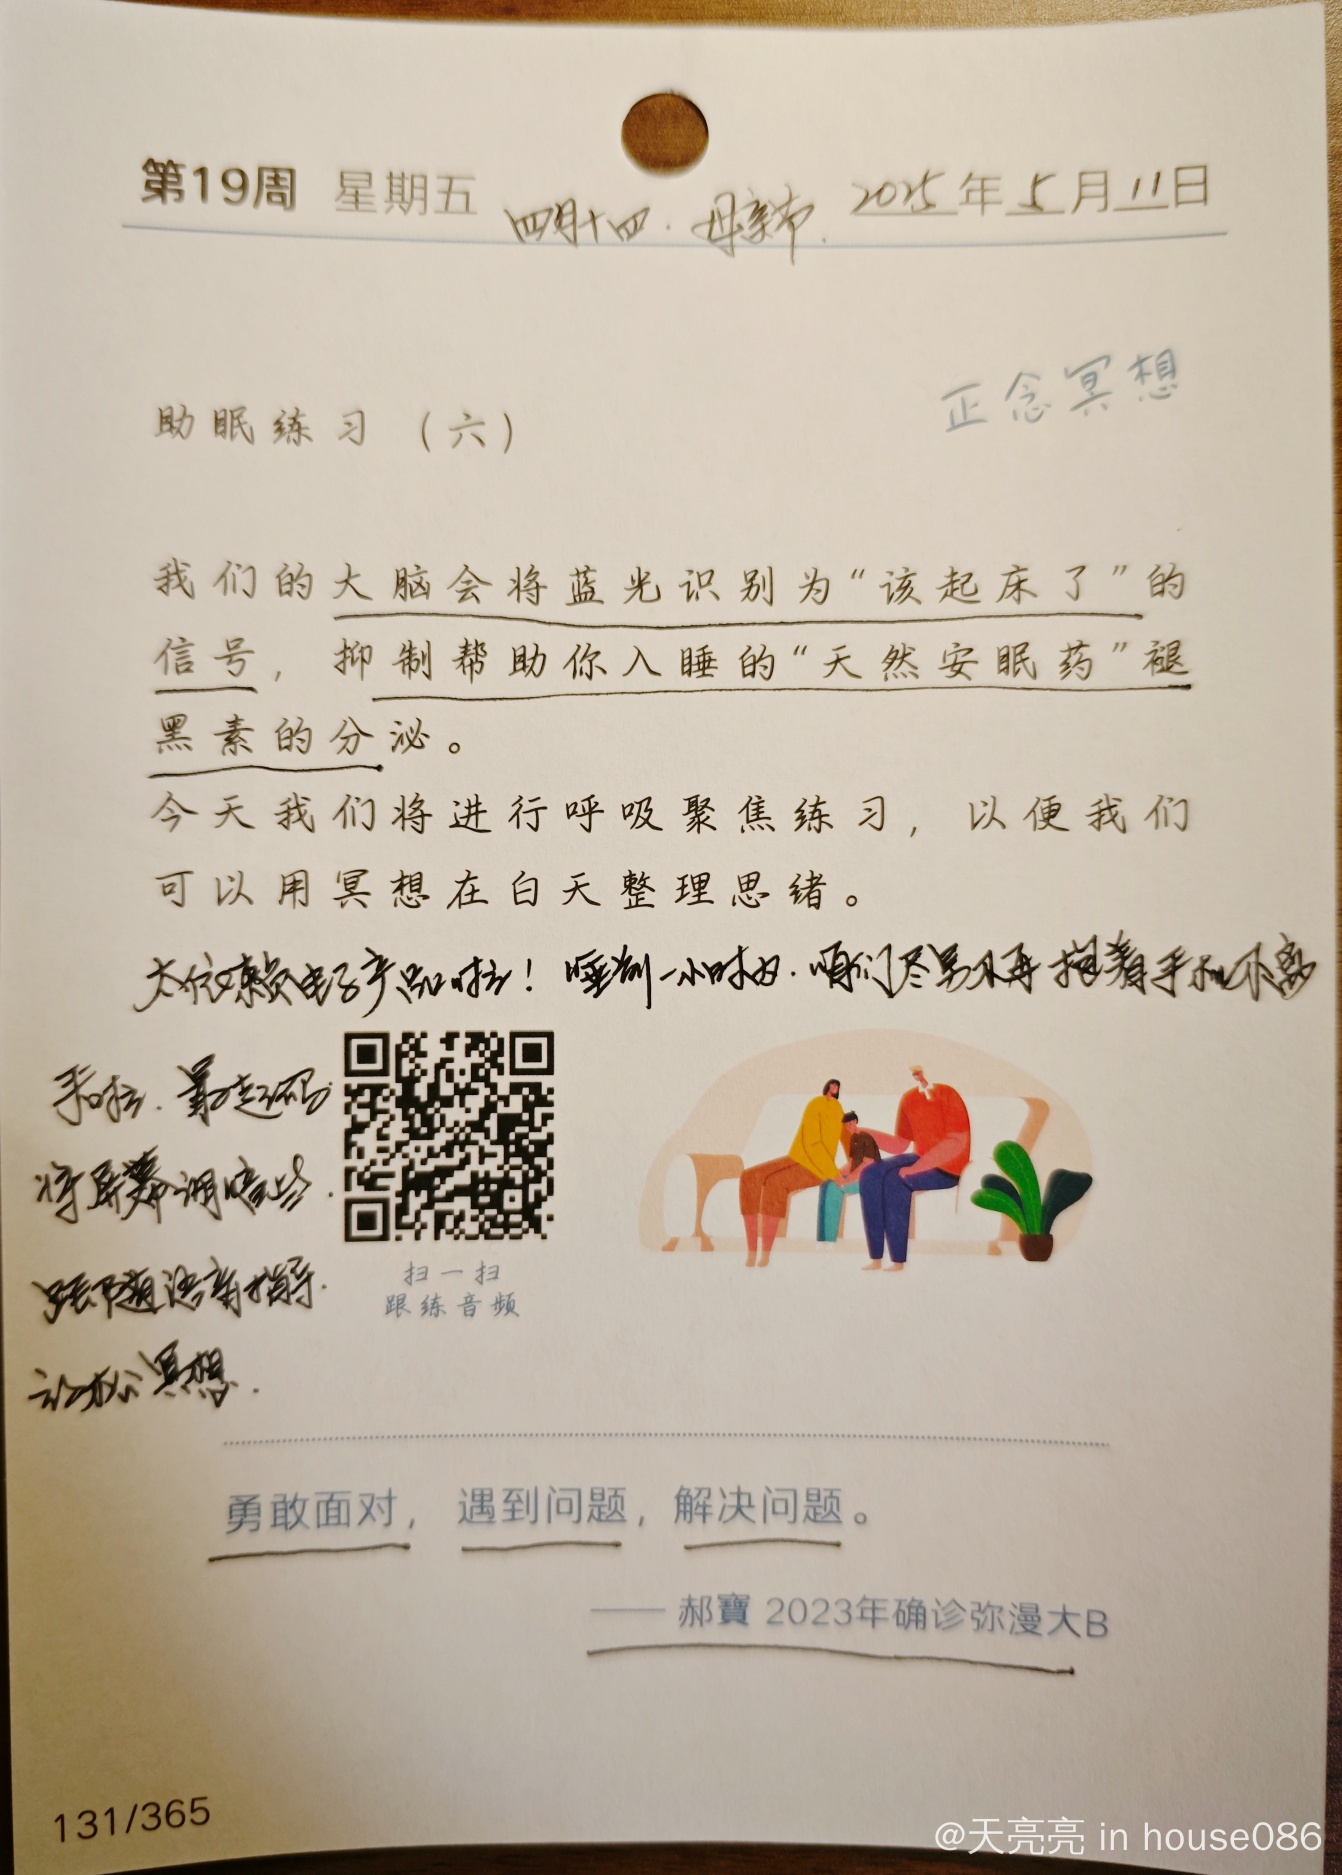 第19周 星期五 四月十四．母亲节． 2025年5月11日
正念冥想
助眠练习（六）
我们的大脑会将蓝光识别为“该起床了”的
信号，抑制帮助你入睡的“天然安眠药”褪
黑素的分泌。
今天我们将进行呼吸聚焦练习，以便我们
可以用冥想在白天整理思绪。
太依赖电子产品啦！睡前一小时内．咱们尽量不再抱着手机不离
手啦．最起码
将屏幕调暗些．
跟随语音指导．
放松冥想．
扫一扫
跟练音频
勇敢面对，遇到问题，解决问题。
—— 郝寶 2023年确诊弥漫大B
131/365
@天亮亮 in house086